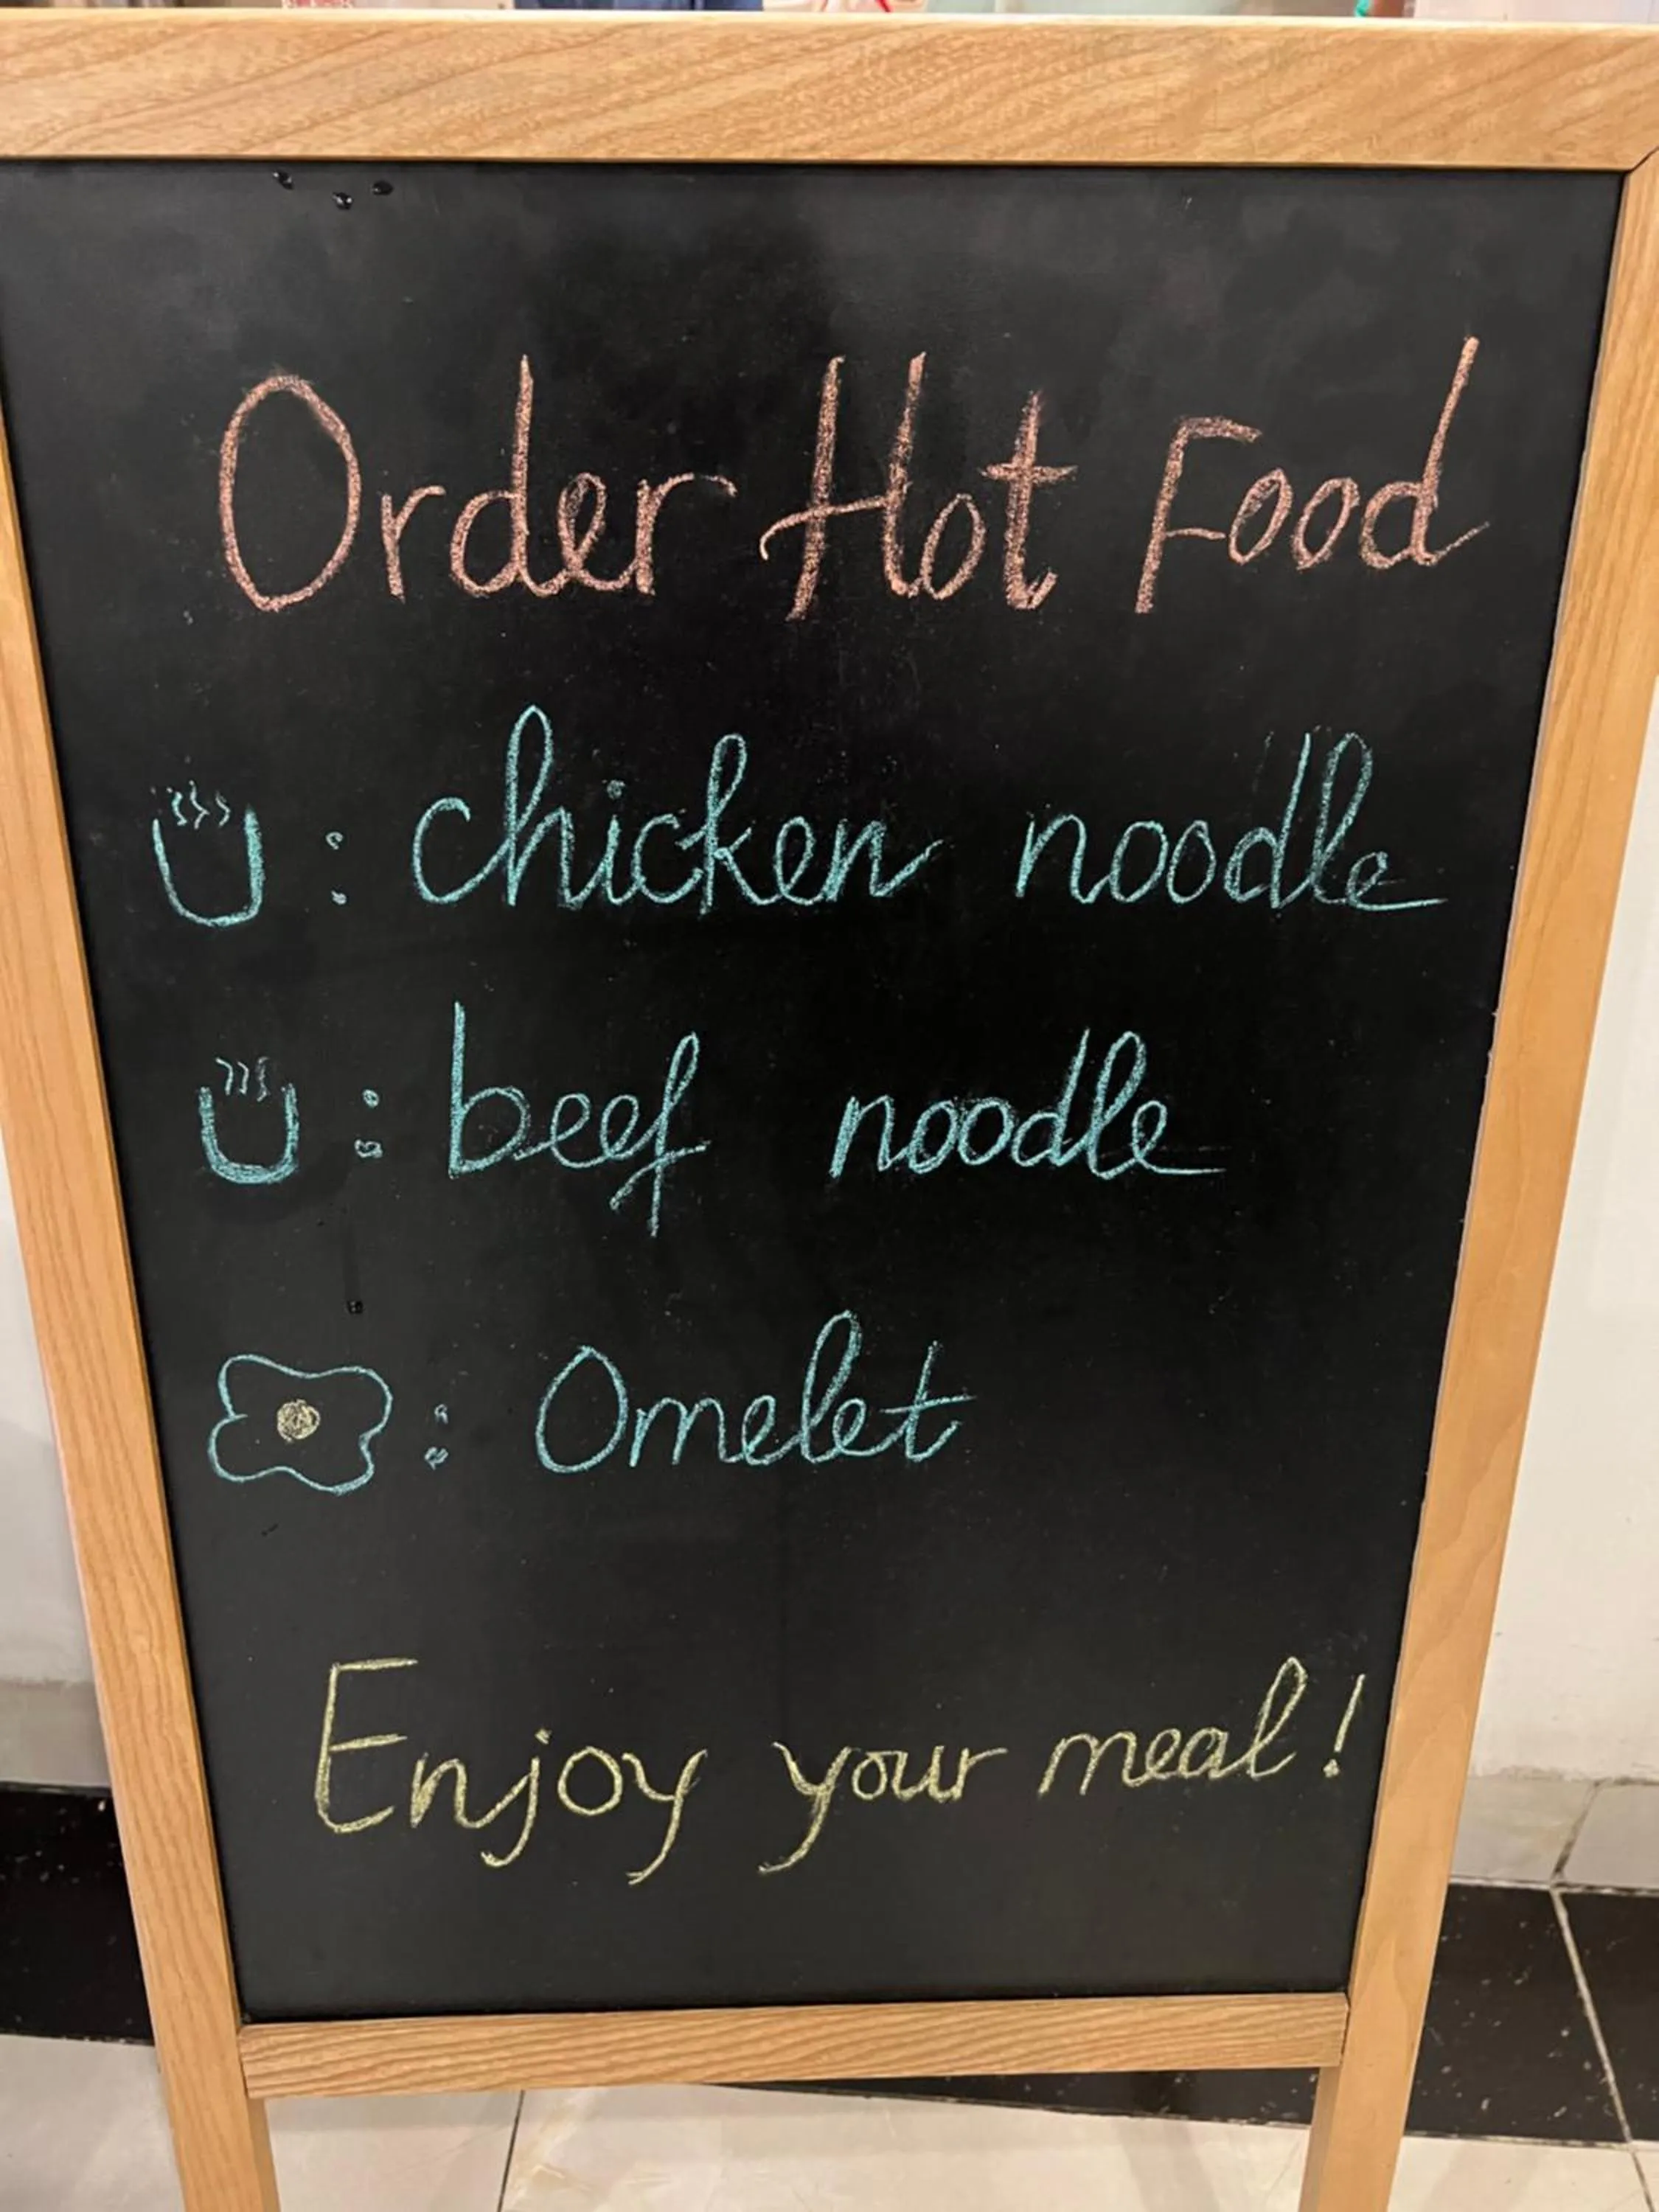 Order Hot Food
: chicken noodle
: beef noodle
: Omelet
Enjoy your meal!